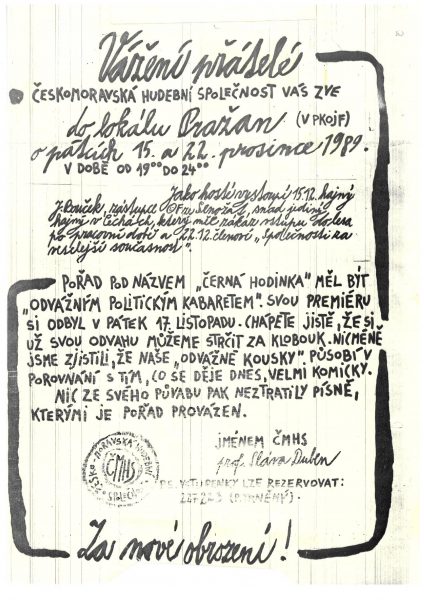 Vážení přátelé
ČESKOMORAVSKÁ HUDEBNÍ SPOLEČNOST VÁS ZVE
do lokálu Pražan (V PKOJF)
o pátcích 15. a 22. prosince 1989.
V DOBĚ OD 19⁰⁰ DO 24⁰⁰
Jako hosté vystoupí 15.12. hajný
J. Souček, zástupce OF ze Senožat, snad jediný
hajný v Čechách, který měl zákaz vstupu do lesa
po pracovní době a 22.12. členové „Společnosti za
veselejší současnost".
POŘAD POD NÁZVEM „ČERNÁ HODINKA" MĚL BÝT
„ODVÁŽNÝM POLITICKÝM KABARETEM". SVOU PREMIÉRU
SI ODBYL V PÁTEK 17. LISTOPADU. CHÁPETE JISTĚ, ŽE SI
UŽ SVOU ODVAHU MŮŽEME STRČIT ZA KLOBOUK. NICMÉNĚ
JSME ZJISTILI, ŽE NAŠE „ODVÁŽNÉ KOUSKY" PŮSOBÍ V
POROVNÁNÍ S TÍM, CO SE DĚJE DNES, VELMI KOMICKY.
NIC ZE SVÉHO PŮVABU PAK NEZTRATILY PÍSNĚ,
KTERÝMI JE POŘAD PROVÁZEN.
JMÉNEM ČMHS
prof. Sláva Duben
ČESKO-MORAVSKÁ HUDEBNÍ SPOLEČNOST
ČMHS
PS. VSTUPENKY LZE REZERVOVAT:
227223
Za nové obrození!